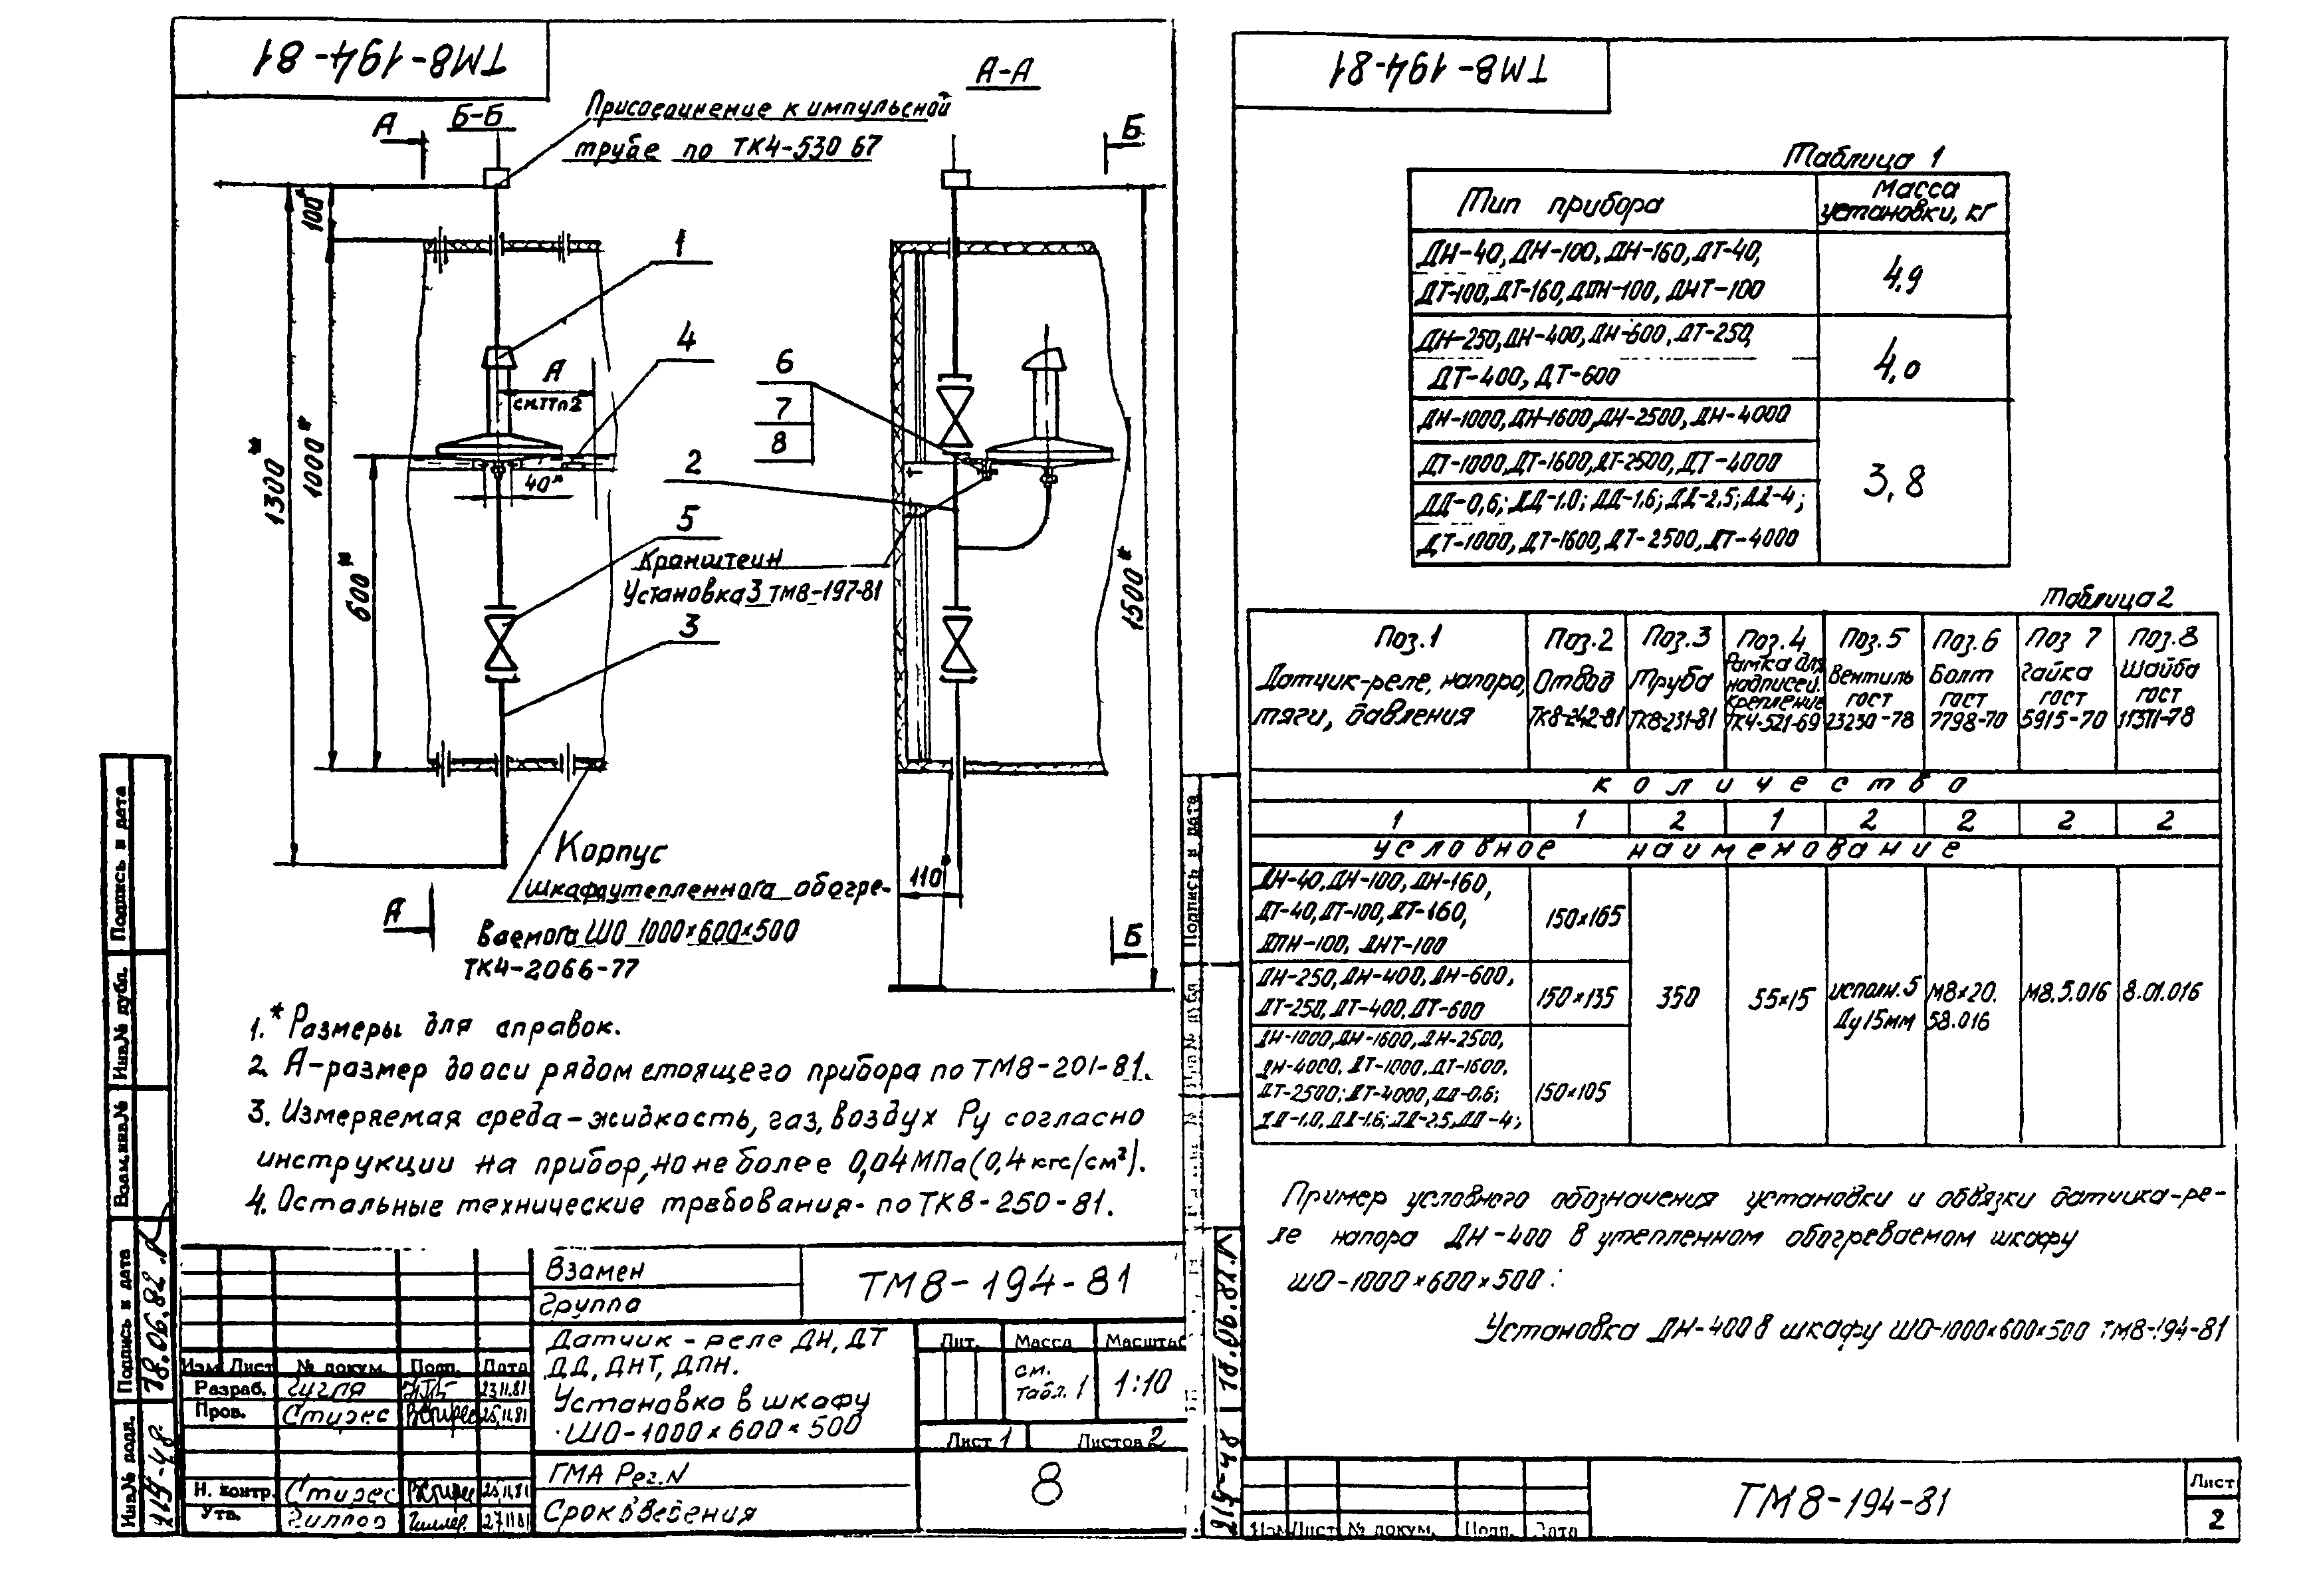 ТМ8-194-81
Б-Б
А-А
А
Присоединение к импульсной
трубе по ТК4-530 67
Б
100*
1
4
А
см.ТТп2
6
7
8
1300*
1000*
2
40*
5
600*
Кронштейн
Установка 3 ТМ8-197-81
1500*
3
Корпус
шкафа утепленного обогре-
ваемого ШО 1000×600×500
ТК4-2066-77
110
А
Б
1.* Размеры для справок.
2. А-размер до оси рядом стоящего прибора по ТМ8-201-81.
3. Измеряемая среда-жидкость, газ, воздух Ру согласно
инструкции на прибор, но не более 0,04 МПа (0,4 кгс/см²).
4. Остальные технические требования - по ТК8-250-81.
Взамен
Группа
ТМ8-194-81
Датчик-реле ДН, ДТ
ДД, ДНТ, ДПН.
Установка в шкафу
ШО-1000×600×500
Лит. Масса Масштаб
см. табл. 1
1:10
Лист 1 Листов 2
ГМА Рег.N
Срок введения
8
Изм Лист № докум. Подп. Дата
Разраб. Гугля 23.11.81
Пров. Стирес 25.11.81
Н. контр. Стирес 25.11.81
Утв. Гиллер 27.11.81
Подпись и дата
Инв.№ дубл.
Взам.инв.№
Подпись и дата
18.06.82
Инв.№ подл.
ТМ8-194-81
Таблица 1
Тип прибора
Масса установки, кг
ДН-40, ДН-100, ДН-160, ДТ-40,
ДТ-100, ДТ-160, ДПН-100, ДНТ-100
4,9
ДН-250, ДН-400, ДН-600, ДТ-250,
ДТ-400, ДТ-600
4,0
ДН-1000, ДН-1600, ДН-2500, ДН-4000
ДТ-1000, ДТ-1600, ДТ-2500, ДТ-4000
3,8
ДД-0,6; ДД-1.0; ДД-1.6; ДД-2,5; ДД-4;
ДТ-1000, ДТ-1600, ДТ-2500, ДТ-4000
Таблица 2
Поз.1 Поз.2 Поз.3 Поз.4 Поз.5 Поз.6 Поз 7 Поз.8
Датчик-реле, напора, тяги, давления
Отвод ТК8-242-81
Труба ТК8-231-81
Рамка для надписей. крепление ТК4-521-69
Вентиль ГОСТ 23230-78
Болт ГОСТ 7798-70
Гайка ГОСТ 5915-70
Шайба ГОСТ 11371-78
количество
1 1 2 1 2 2 2 2
условное наименование
ДН-40, ДН-100, ДН-160,
ДТ-40, ДТ-100, ДТ-160,
ДПН-100, ДНТ-100
150×165
ДН-250, ДН-400, ДН-600,
ДТ-250, ДТ-400, ДТ-600
150×135
350
55×15
исполн.5 Ду 15мм
М8×20. 58.016
М8.5.016
8.01.016
ДН-1000, ДН-1600, ДН-2500,
ДН-4000, ДТ-1000, ДТ-1600,
ДТ-2500; ДТ-4000, ДД-0.6;
ДД-1.0, ДД-1.6; ДД-2.5, ДД-4;
150×105
Пример условного обозначения установки и обвязки датчика-ре-
ле напора ДН-400 в утепленном обогреваемом шкафу
ШО-1000×600×500:
Установка ДН-400 в шкафу ШО-1000×600×500 ТМ8-194-81
Подпись и дата
18.06.82
Изм Лист № докум. Подп. Дата
ТМ8-194-81
Лист
2